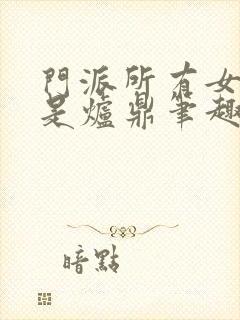 門派所有女
是爐鼎筆趣
暗點